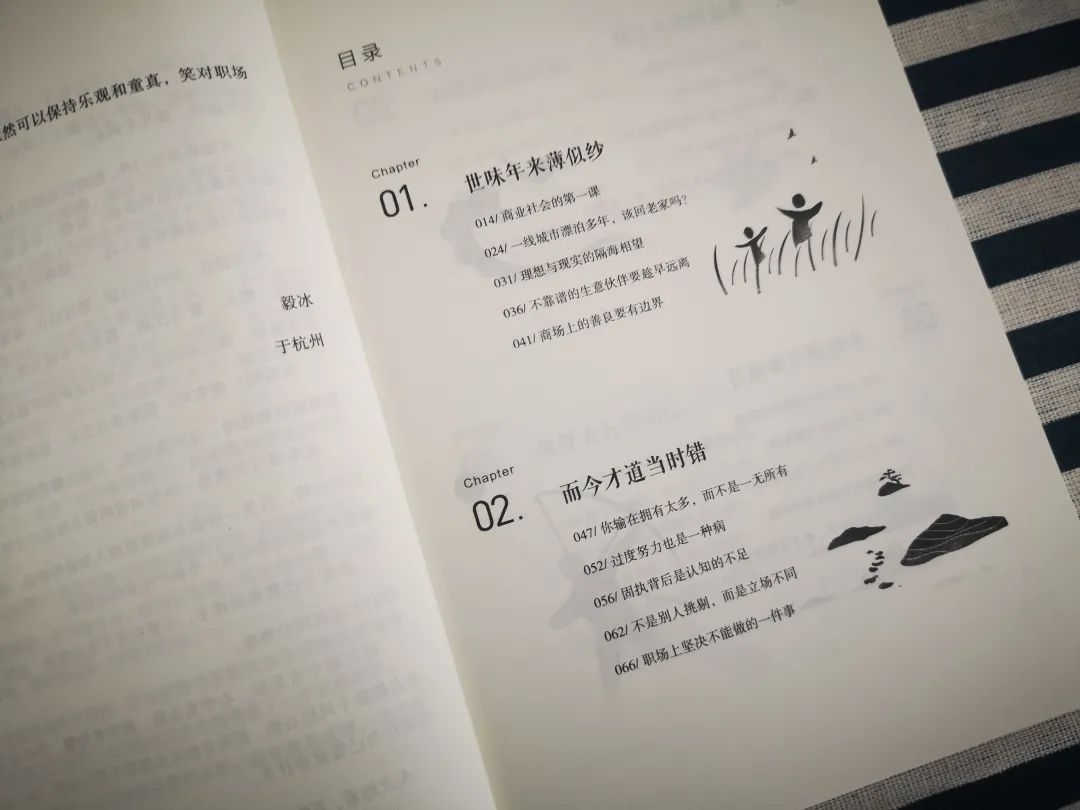 然可以保持乐观和童真，笑对职场
毅冰
于杭州
目录
CONTENTS
Chapter
01.
世味年来薄似纱
014/ 商业社会的第一课
024/ 一线城市漂泊多年，该回老家吗？
031/ 理想与现实的隔海相望
036/ 不靠谱的生意伙伴要趁早远离
041/ 商场上的善良要有边界
Chapter
02.
而今才道当时错
047/ 你输在拥有太多，而不是一无所有
052/ 过度努力也是一种病
056/ 固执背后是认知的不足
062/ 不是别人挑剔，而是立场不同
066/ 职场上坚决不能做的一件事